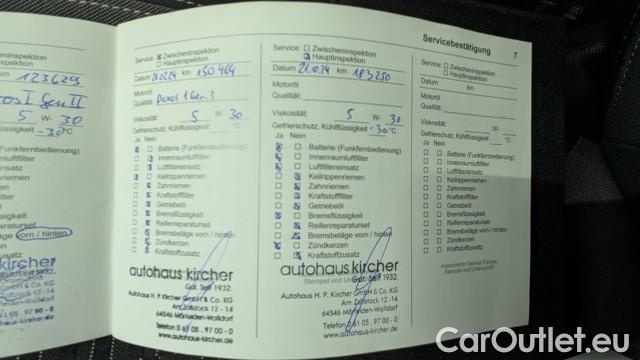 Servicebestätigung 7
123629
Gen II
5 W- 30
-30°C
nspektion
Funkfernbedienung)
mfilter
ilter
iemen
filter
sigkeit
araturset
eläge vorn / hinten
en
usatz
kircher
Service: Zwischeninspektion
Hauptinspektion
Datum 24 km 150 464
Motoröl
Qualität: Dexos 1 Gen. 3
Viskosität: 5 W- 30
Gefrierschutz, Kühlflüssigkeit °C
Ja Nein
Batterie (Funkfernbedienung)
Innenraumluftfilter
Luftfiltereinsatz
Keilrippenriemen
Zahnriemen
Kraftstofffilter
Getriebeöl
Bremsflüssigkeit
Reifenreparaturset
Bremsbeläge vorn / hinten
Zündkerzen
Kraftstoffzusatz
autohaus kircher
Gut. Seit 1932.
Autohaus H. P. Kircher GmbH & Co. KG
Am Zollstock 12 - 14
64546 Mörfelden-Walldorf
Telefon 0 61 05 . 97 00 - 0
www.autohaus-kircher.de
Service: Zwischeninspektion
Hauptinspektion
Datum 21.10.24 km 183 250
Motoröl
Qualität:
Viskosität: 5 W- 30
Gefrierschutz, Kühlflüssigkeit -30°C
Ja Nein
Batterie (Funkfernbedienung)
Innenraumluftfilter
Luftfiltereinsatz
Keilrippenriemen
Zahnriemen
Kraftstofffilter
Getriebeöl
Bremsflüssigkeit
Reifenreparaturset
Bremsbeläge vorn / hinten
Zündkerzen
Kraftstoffzusatz
autohaus kircher
Gut. Seit 1932.
Autohaus H. P. Kircher GmbH & Co. KG
Am Zollstock 12 - 14
64546 Mörfelden-Walldorf
Telefon 0 61 05 . 97 00 - 0
www.autohaus-kircher.de
Service: Zwischeninspektion
Hauptinspektion
Datum km
Motoröl
Qualität:
Viskosität: W-
Gefrierschutz, Kühlflüssigkeit °C
Ja Nein
Batterie (Funkfernbedienung)
Innenraumluftfilter
Luftfiltereinsatz
Keilrippenriemen
Zahnriemen
Kraftstofffilter
Getriebeöl
Bremsflüssigkeit
Reifenreparaturset
Bremsbeläge vorn / hinten
Zündkerzen
Kraftstoffzusatz
Autorisierter Service Partner
Stempel und Unterschrift
CarOutlet.eu